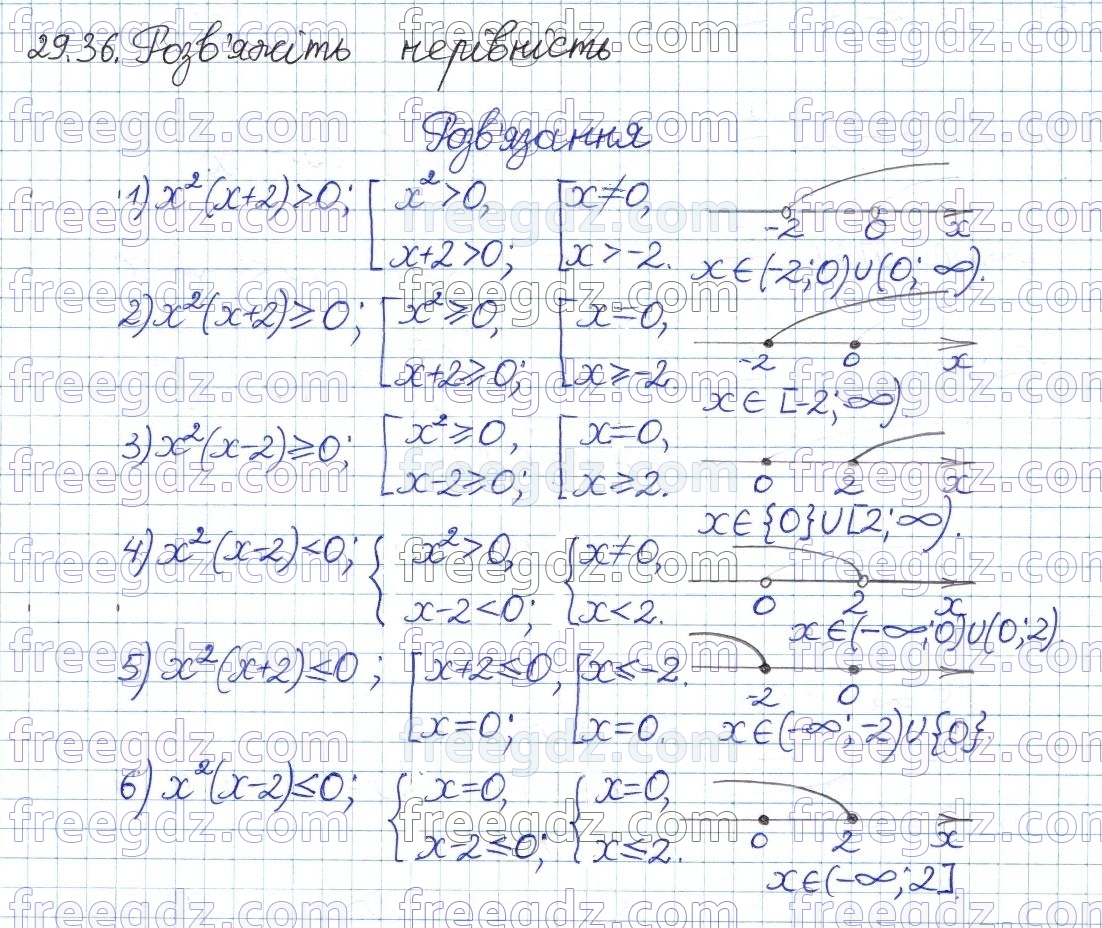 29.36. Розв'яжіть нерівність
Розв'язання
1) x²(x+2)>0; [ x²>0, [ x≠0,
x+2>0; x>-2.
-2 0 x
x∈(-2;0)∪(0;∞).
2) x²(x+2)≥0; [ x²≥0, [ x=0,
x+2≥0; x≥-2.
-2 0 x
x∈[-2;∞)
3) x²(x-2)≥0; [ x²≥0, [ x=0,
x-2≥0; x≥2.
0 2 x
x∈{0}∪[2;∞).
4) x²(x-2)<0; { x²>0, { x≠0,
x-2<0; x<2.
0 2 x
x∈(-∞;0)∪(0;2).
5) x²(x+2)≤0; [ x+2≤0, [ x≤-2.
x=0; x=0.
-2 0
x∈(-∞;-2)∪{0}
6) x²(x-2)≤0; { x=0, { x=0,
x-2≤0; x≤2.
0 2 x
x∈(-∞;2].
freegdz.com